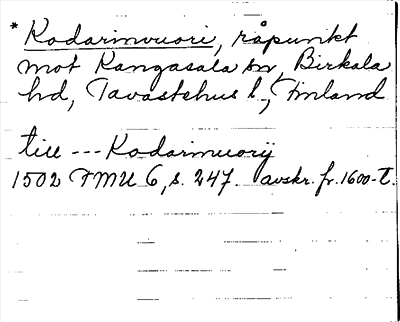 * Kodarinvuori, råpunkt
mot Kangasala sn, Birkala
hd, Tavastehus l., Finland
till --- Kodarinuorij
1502 FMU 6, s. 247. avskr. fr. 1600-t.